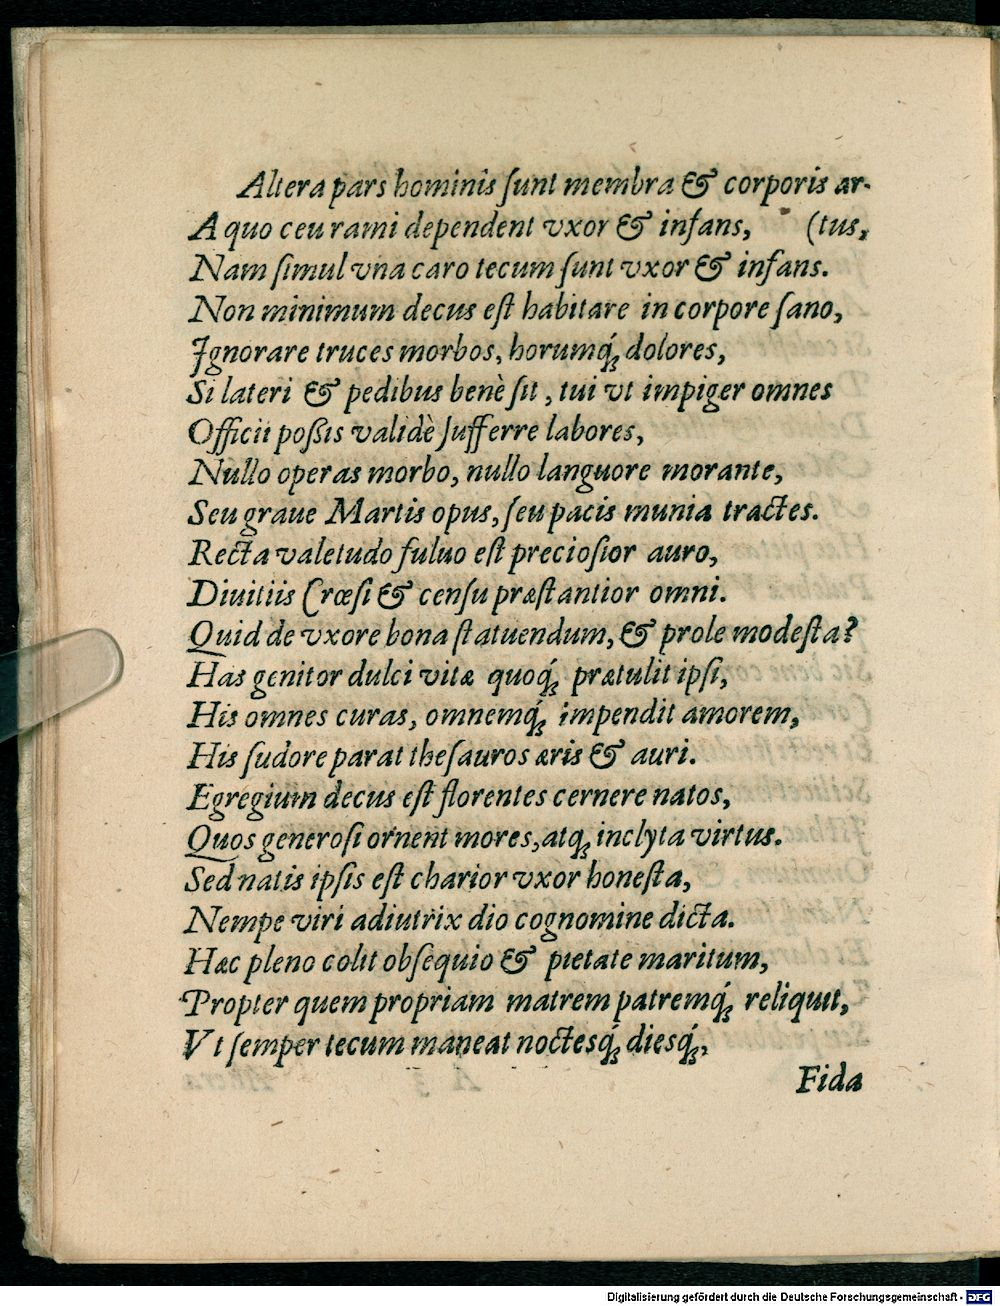 Altera pars hominis ſunt membra & corporis ar-
A quo ceu rami dependent vxor & infans, (tus,
Nam ſimul vna caro tecum ſunt vxor & infans.
Non minimum decus eſt habitare in corpore ſano,
Ignorare truces morbos, horumq́; dolores,
Si lateri & pedibus benè ſit, tui vt impiger omnes
Officii poßis validè ſufferre labores,
Nullo operas morbo, nullo languore morante,
Seu graue Martis opus, ſeu pacis munia tractes.
Recta valetudo fuluo eſt precioſior auro,
Diuitiis Crœſi & cenſu præſtantior omni.
Quid de vxore bona ſtatuendum, & prole modeſta?
Has genitor dulci vitæ quoq́; prætulit ipſi,
His omnes curas, omnemq́; impendit amorem,
His ſudore parat theſauros æris & auri.
Egregium decus eſt florentes cernere natos,
Quos generoſi ornent mores, atq; inclyta virtus.
Sed natis ipſis eſt charior vxor honeſta,
Nempe viri adiutrix dio cognomine dicta.
Hæc pleno colit obſequio & pietate maritum,
Propter quem propriam matrem patremq́; reliquit,
Vt ſemper tecum maneat noctesq́; diesq́;,
Fida
Digitalisierung gefördert durch die Deutsche Forschungsgemeinschaft - DFG